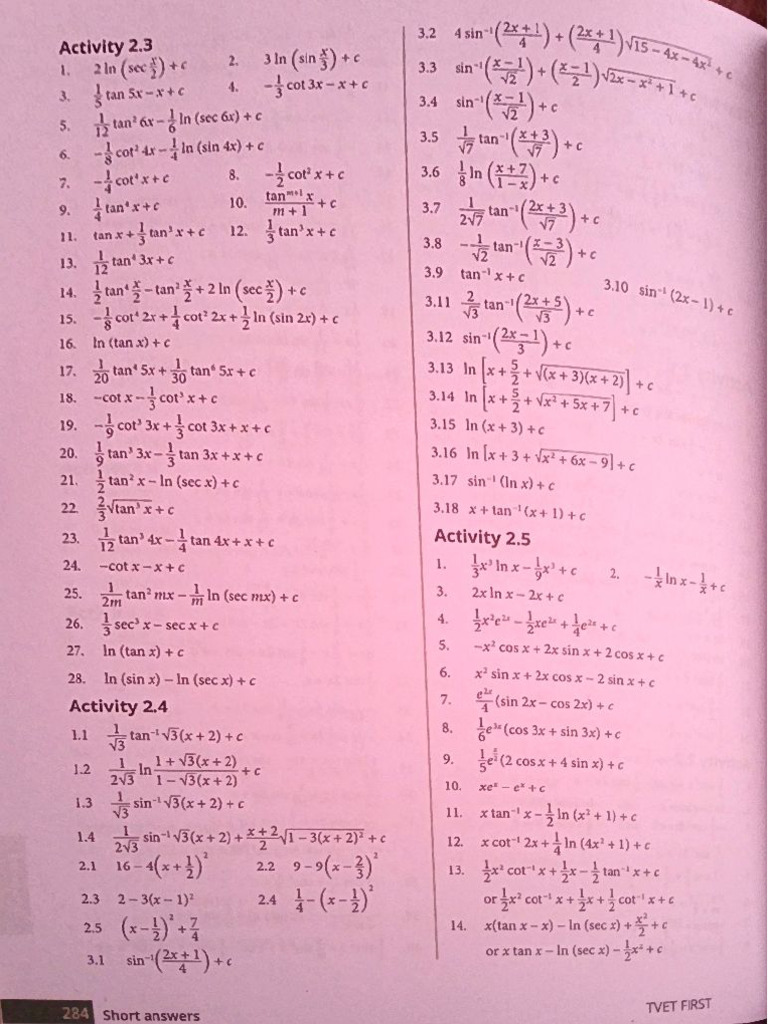 Activity 2.3
1. 2 ln (sec x/2) + c 2. 3 ln (sin x/3) + c
3. 1/5 tan 5x – x + c 4. –1/3 cot 3x – x + c
5. 1/12 tan² 6x – 1/6 ln (sec 6x) + c
6. –1/8 cot² 4x – 1/4 ln (sin 4x) + c
7. –1/4 cot⁴ x + c 8. –1/2 cot² x + c
9. 1/4 tan⁴ x + c 10. tanᵐ⁺¹ x/(m + 1) + c
11. tan x + 1/3 tan³ x + c 12. 1/3 tan³ x + c
13. 1/12 tan⁴ 3x + c
14. 1/2 tan⁴ x/2 – tan² x/2 + 2 ln (sec x/2) + c
15. –1/8 cot⁴ 2x + 1/4 cot² 2x + 1/2 ln (sin 2x) + c
16. ln (tan x) + c
17. 1/20 tan⁴ 5x + 1/30 tan⁶ 5x + c
18. –cot x – 1/3 cot³ x + c
19. –1/9 cot³ 3x + 1/3 cot 3x + x + c
20. 1/9 tan³ 3x – 1/3 tan 3x + x + c
21. 1/2 tan² x – ln (sec x) + c
22. 2/3 √(tan³ x) + c
23. 1/12 tan³ 4x – 1/4 tan 4x + x + c
24. –cot x – x + c
25. 1/2m tan² mx – 1/m ln (sec mx) + c
26. 1/3 sec³ x – sec x + c
27. ln (tan x) + c
28. ln (sin x) – ln (sec x) + c
Activity 2.4
1.1 1/√3 tan⁻¹ √3(x + 2) + c
1.2 1/2√3 ln (1 + √3(x + 2))/(1 – √3(x + 2)) + c
1.3 1/√3 sin⁻¹ √3(x + 2) + c
1.4 1/2√3 sin⁻¹ √3(x + 2) + (x + 2)/2 √(1 – 3(x + 2)²) + c
2.1 16 – 4(x + 1/2)² 2.2 9 – 9(x – 2/3)²
2.3 2 – 3(x – 1)² 2.4 1/4 – (x – 1/2)²
2.5 (x – 1/2)² + 7/4
3.1 sin⁻¹((2x + 1)/4) + c
3.2 4 sin⁻¹((2x + 1)/4) + ((2x + 1)/4)√(15 – 4x – 4x²) + c
3.3 sin⁻¹((x – 1)/√2) + ((x – 1)/2)√(2x – x² + 1) + c
3.4 sin⁻¹((x – 1)/√2) + c
3.5 1/√7 tan⁻¹((x + 3)/√7) + c
3.6 1/8 ln ((x + 7)/(1 – x)) + c
3.7 1/2√7 tan⁻¹((2x + 3)/√7) + c
3.8 –1/√2 tan⁻¹((x – 3)/√2) + c
3.9 tan⁻¹ x + c 3.10 sin⁻¹ (2x – 1) + c
3.11 2/√3 tan⁻¹((2x + 5)/√3) + c
3.12 sin⁻¹((2x – 1)/3) + c
3.13 ln [x + 5/2 + √((x + 3)(x + 2))] + c
3.14 ln [x + 5/2 + √(x² + 5x + 7)] + c
3.15 ln (x + 3) + c
3.16 ln [x + 3 + √(x² + 6x – 9)] + c
3.17 sin⁻¹ (ln x) + c
3.18 x + tan⁻¹ (x + 1) + c
Activity 2.5
1. 1/3 x³ ln x – 1/9 x³ + c 2. –1/x ln x – 1/x + c
3. 2x ln x – 2x + c
4. 1/2 x²e²ˣ – 1/2 xe²ˣ + 1/4 e²ˣ + c
5. –x² cos x + 2x sin x + 2 cos x + c
6. x² sin x + 2x cos x – 2 sin x + c
7. e²ˣ/4 (sin 2x – cos 2x) + c
8. 1/6 e³ˣ (cos 3x + sin 3x) + c
9. 1/5 e^(x/2) (2 cos x + 4 sin x) + c
10. xeˣ – eˣ + c
11. x tan⁻¹ x – 1/2 ln (x² + 1) + c
12. x cot⁻¹ 2x + 1/4 ln (4x² + 1) + c
13. 1/2 x² cot⁻¹ x + 1/2 x – 1/2 tan⁻¹ x + c
or 1/2 x² cot⁻¹ x + 1/2 x + 1/2 cot⁻¹ x + c
14. x(tan x – x) – ln (sec x) + x²/2 + c
or x tan x – ln (sec x) – 1/2 x² + c
284 Short answers
TVET FIRST